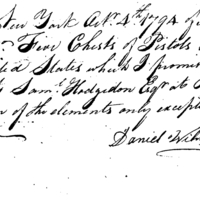 New York Octr. 4th 1794
Five Chests of Pistols
States which I promise
Saml. Hodgsdon Esqr at
of the elements only except
Daniel